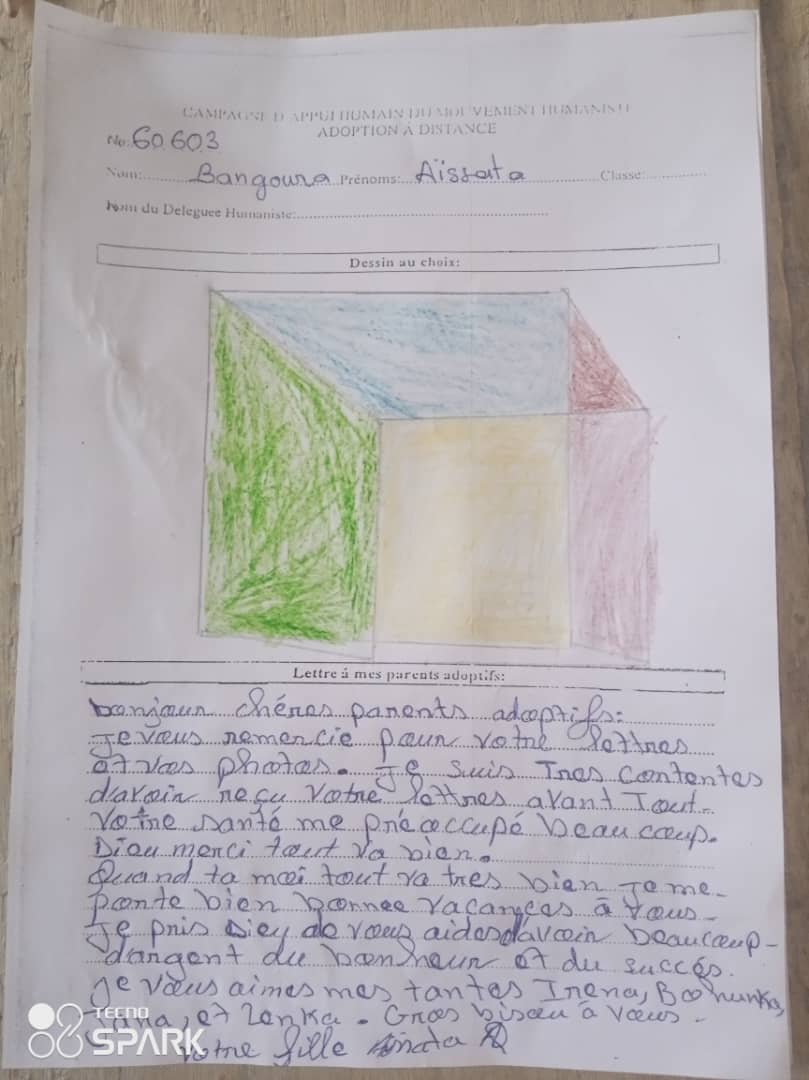 CAMPAGNE D'APPUI HUMAIN DU MOUVEMENT HUMANISTE
ADOPTION À DISTANCE
No: 60.603
Nom: Bangoura Prénoms: Aïssata Classe:
Nom du Deleguee Humaniste:
Dessin au choix:
Lettre á mes parents adoptifs:
bonjour chéres parents adoptifs:
je vous remercie pour votre lettres
et vos photos. je suis Tres contentes
d'avoir reçu votre lettres avant Tout.
votre santé me préoccupé beaucoup.
Dieu merci tout va bien.
Quand ta moi tout va tres bien je me
porte bien bonnee vacances à vous.
je pris Dieu de vous aides d'avoir beaucoup
d'argent du bonheur et du succés.
je vous aimes mes tantes Irena, Bohunka,
et Zenka. Gros bisou à vous.
votre fille
TECNO
SPARK